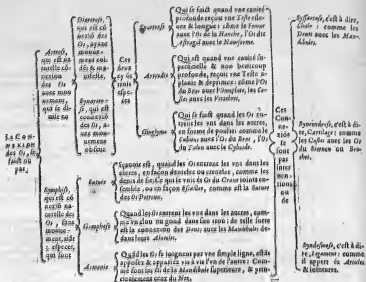 LA CON-
NEXION
des Os, se
faict ou
par,
Artrose,
qui est cō
nexion
des Os
avec mou
vement,
qui se di-
uise en
Diartrose,
qui est cō
nexion des
Os, ayans
mouue-
ment eui-
dēt & ma-
nifeste,
Synartro-
se, qui est
connexion
des Os, a-
uec mou-
uement
obscur
Ces
deux
en
trois
especes
Enartrose
Qui se faict quand vne cauité
profonde reçoit vne Teste ron-
de & longue: comme le Femur
avec l'Os de la Hanche, l'Os dit
Astragal avec le Nauiforme.
Artrodie
Qui est quand vne cauité su-
perficielle & non beaucoup
profonde, reçoit vne Teste a-
platie & deprimee: comme l'Os
du Bras avec l'Omoplate, les Co-
stes avec les Vertebres.
Ginglyme
Qui se faict quand les Os en-
trent les vns dans les autres,
en forme de poulies comme le
Cubitus avec l'Os du Bras, l'Os
du Talon avec le Cyboide.
Symphyse,
qui est cō
nexion na-
turelle des
Os, sans
mouue-
ment,
especes,
qui sont
Suture
Sçauoir est, quand les Os entrent les vns dans les
autres, en façon dentelee ou comme les
dents de
semble, ou en façon comme est la Suture
des Os
Gomphose
Quand les Os entrent les vns dans les autres, com-
me vn clou ou gond dans son trou: de telle sorte
est la connexion des Dents avec les Mandibules de-
dans leurs Alueoles.
Armonie
Quād les Os se ioignent par vne simple ligne, estās
apposez & vis à vis l'vn de l'autre: Com-
me sont les Os de la Mandibule superieure, & prin-
cipalement ceux du Nez.
Ces
Con-
nexiō
se sōt
ou
par in-
teruen-
tions
ou de
c'est à dire,
Chair: comme les
Dents avec les Man-
dibules.
c'est à di-
re, Cartilage: comme
les Os
du Sternon ou Bre-
chet.
c'est à di-
re, Ligament: comme
il appert és Articles
& iointures.